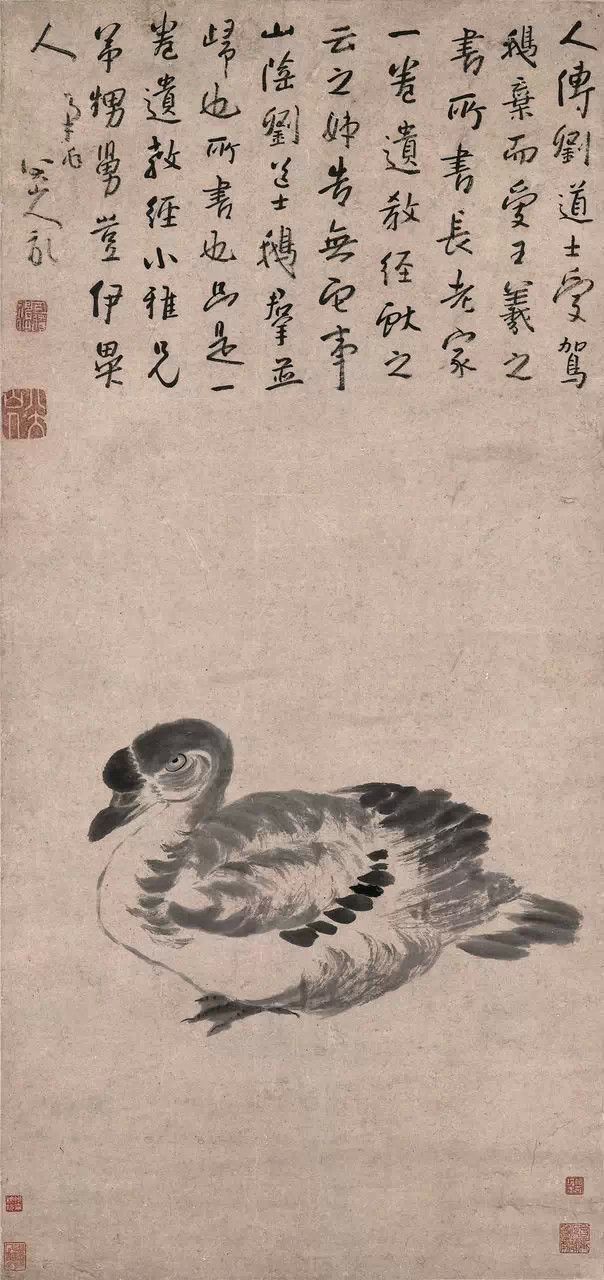 人傳劉道士受駕
鵝棄而愛王羲之
書所書長老家
一卷遺教經獻之
云之姊告無更事
山陰劉道士鵝群並
歸也所書也只是一
卷遺教經小雅兄
弟甥舅豈伊異
人
八山人